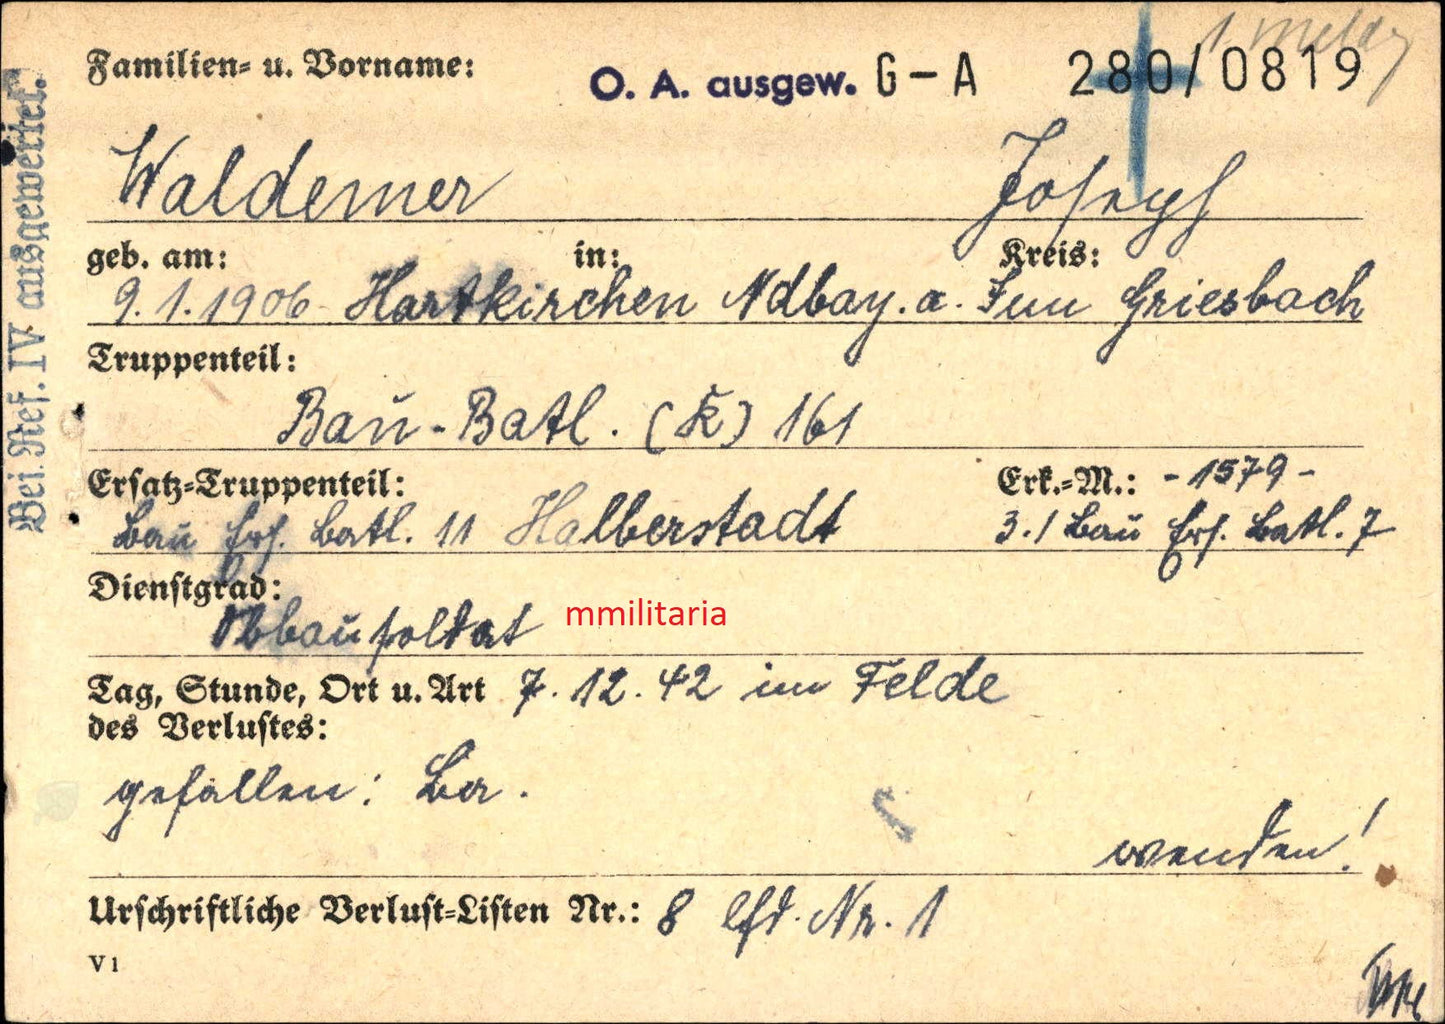 1 Meldg
Familien- u. Vorname: O. A. ausgew. G-A 280/0819
Waldemer Joseph
geb. am: in: Kreis:
9.1.1906 Hartkirchen Ndbay. a. Inn Griesbach
Truppenteil:
Bau-Batl. (K) 161
Ersatz-Truppenteil: Erk.-M.: -1579-
Bau Ers. Batl. 11 Halberstadt 3./Bau Ers. Batl. 7
Dienstgrad:
Obbausoldat mmilitaria
Tag, Stunde, Ort u. Art 7.12.42 im Felde
des Verlustes:
gefallen:
wenden!
Urschriftliche Verlust-Listen Nr.: 8 lfd. Nr. 1
V1
Bei. Ref. IV ausgewertet.